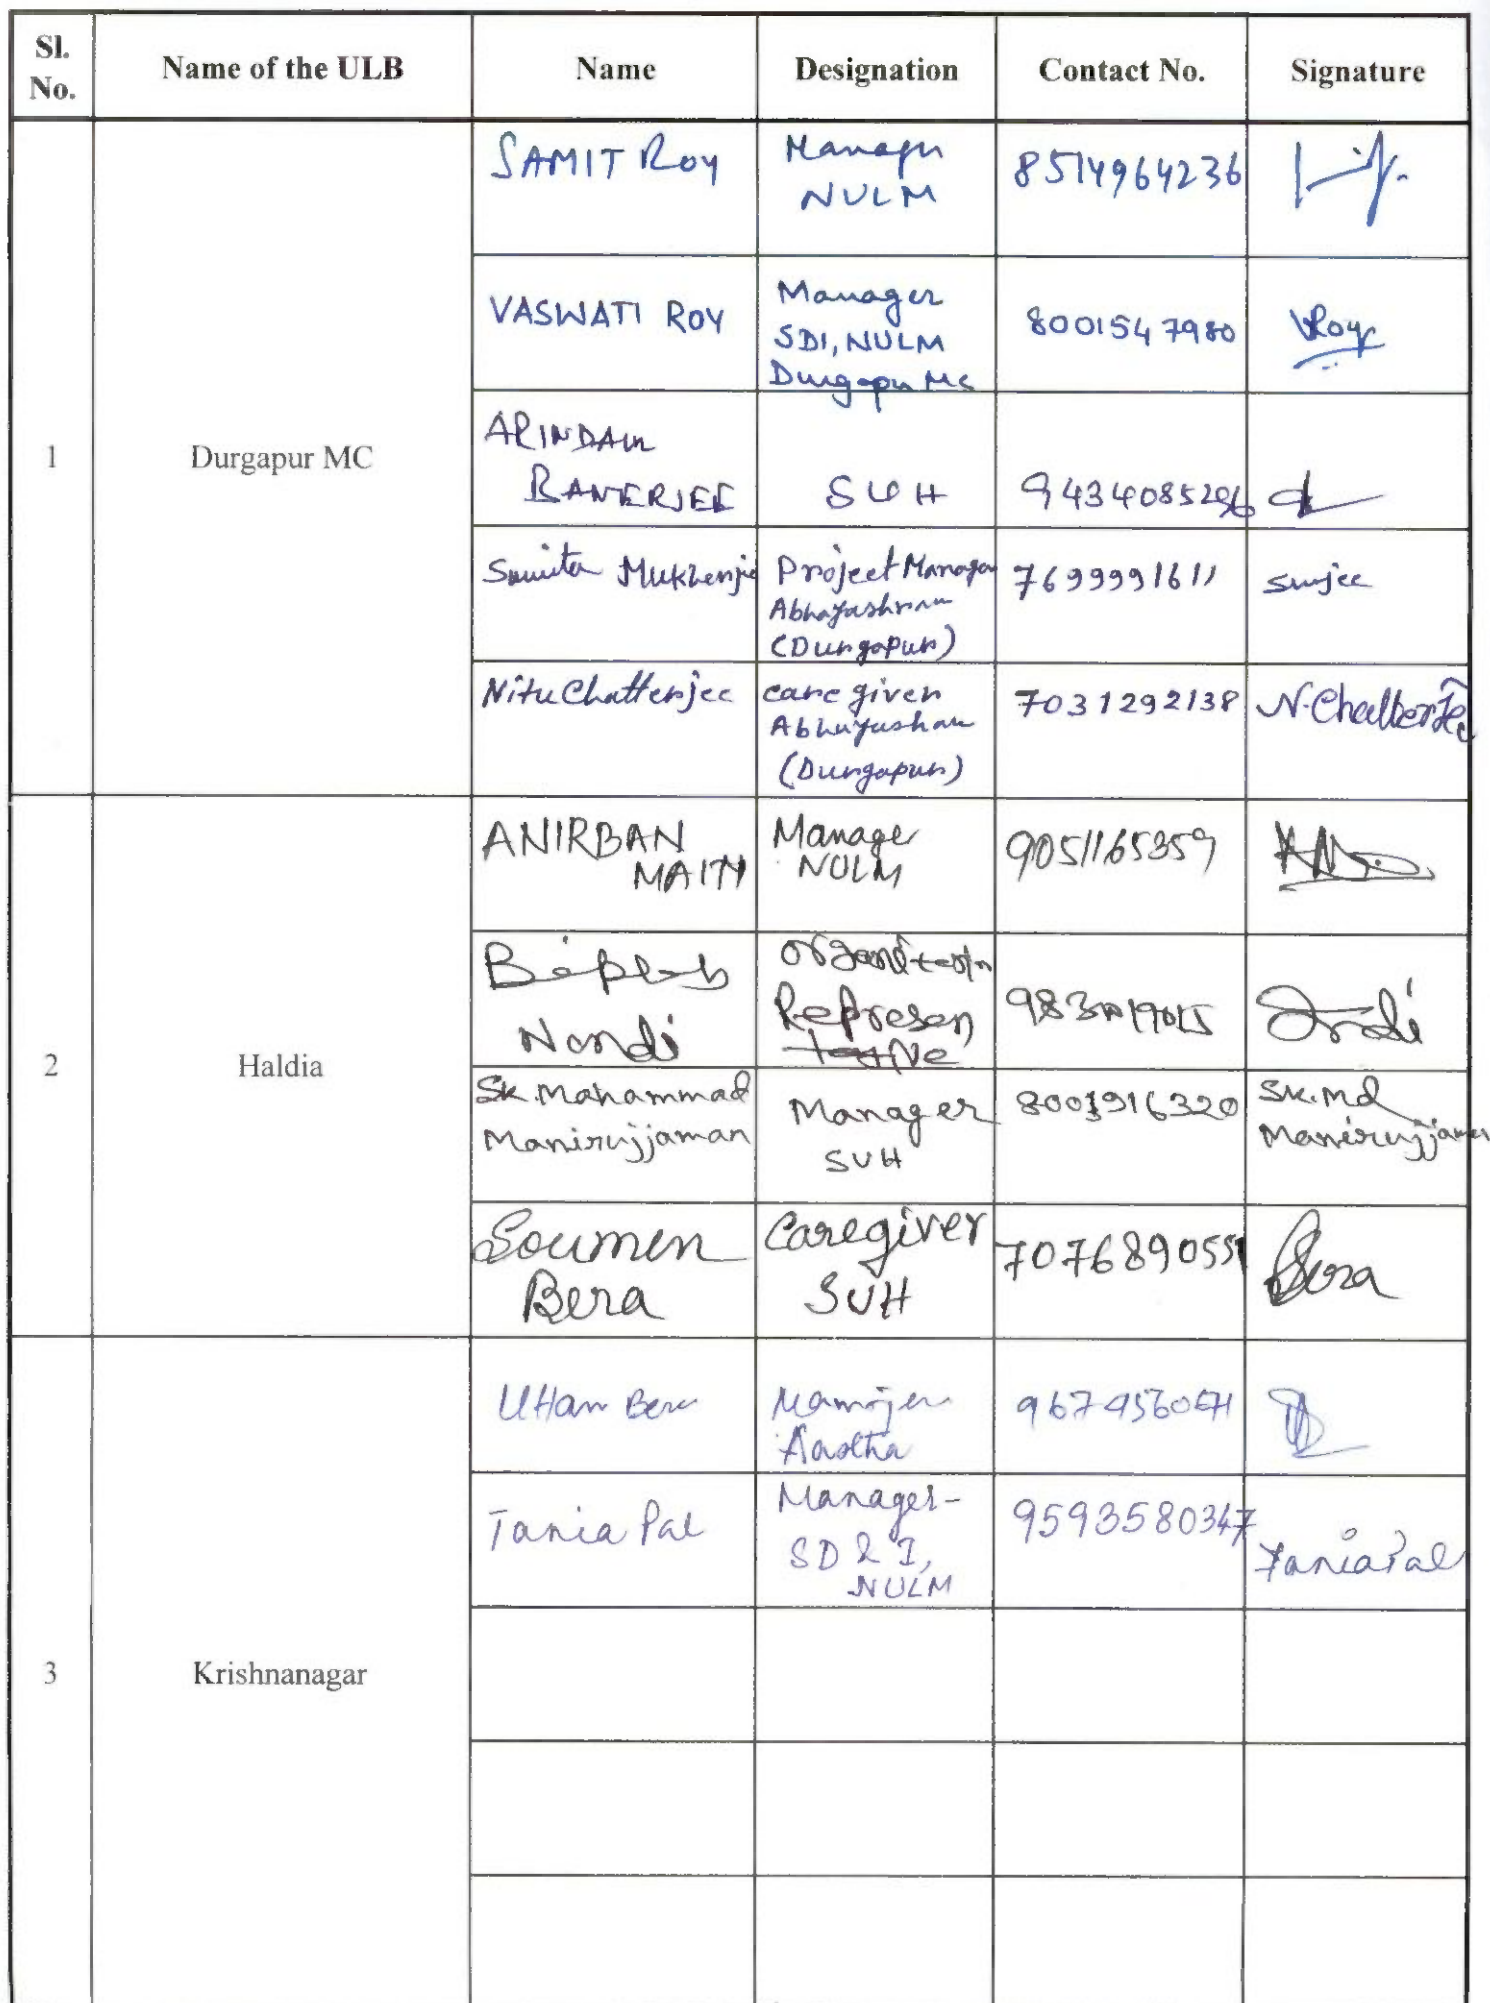 Sl. No. Name of the ULB Name Designation Contact No. Signature
1 Durgapur MC
SAMIT Roy Manager NULM 8514964236
VASWATI ROY Manager SDI, NULM Durgapur MC 8001547980 VRoy
ARINDAM BANERJEE SUH 9434085296
Sumita Mukherjee Project Manager Abhayashram (Durgapur) 7699991611 smjee
Nitu Chatterjee care giver Abhayashram (Durgapur) 7031292138 N. Chatterjee
2 Haldia
ANIRBAN MAITY Manager NULM 9051165359
Biplab Nandi Representative
Sk. Mahammad Manirujjaman Manager SUH 8001916320 Sk. Md Manirujjaman
Soumen Bera Caregiver SUH 7076890551 Bera
3 Krishnanagar
Uttam Bera Manager Aastha
Tania Pal Manager- SD & I, NULM 9593580347 Tania Pal